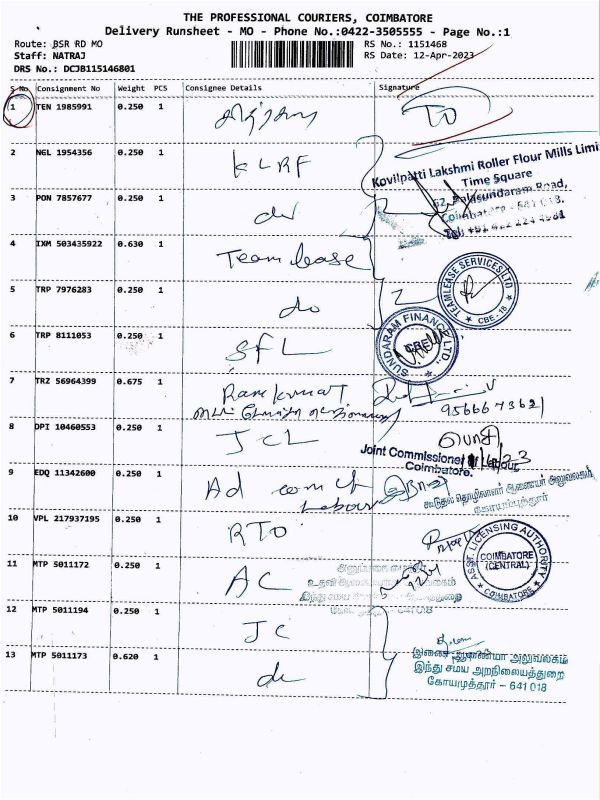 THE PROFESSIONAL COURIERS, COIMBATORE
Delivery Runsheet - MO - Phone No.:0422-3505555 - Page No.:1
Route: BSR RD MO
RS No.: 1151468
Staff: NATRAJ
RS Date: 12-Apr-2023
DRS No.: DCJB115146801
S No. Consignment No Weight PCS Consignee Details Signature
1 TEN 1985991 0.250 1
2 NGL 1954356 0.250 1 KLRF
Kovilpatti Lakshmi Roller Flour Mills Limi
Time Square
62, Balasundaram Road,
Coimbatore - 641 018.
3 PON 7857677 0.250 1 do
4 IXM 503435922 0.630 1 Team lease
TEAMLEASE SERVICES LTD
CBE - 18
5 TRP 7976283 0.250 1 do
6 TRP 8111053 0.250 1 SFL
SUNDARAM FINANCE LTD.,
CBE
7 TRZ 56964399 0.675 1 Ramkumar
8 DPI 10460553 0.250 1 JCL
Joint Commissioner of Labour,
Coimbatore.
9 EDQ 11342600 0.250 1 Ad com of
Labour
கூடுதல் தொழிலாளர் ஆணையர் அலுவலகம்
கோயமுத்தூர்
10 VPL 217937195 0.250 1 RTO
ASST. LICENSING AUTHORITY
COIMBATORE
(CENTRAL)
COIMBATORE
11 MTP 5011172 0.250 1 AC
12 MTP 5011194 0.250 1 JC
13 MTP 5011173 0.620 1 do
இணை ஆணையர் அலுவலகம்
இந்து சமய அறநிலையத்துறை
கோயமுத்தூர் - 641 018